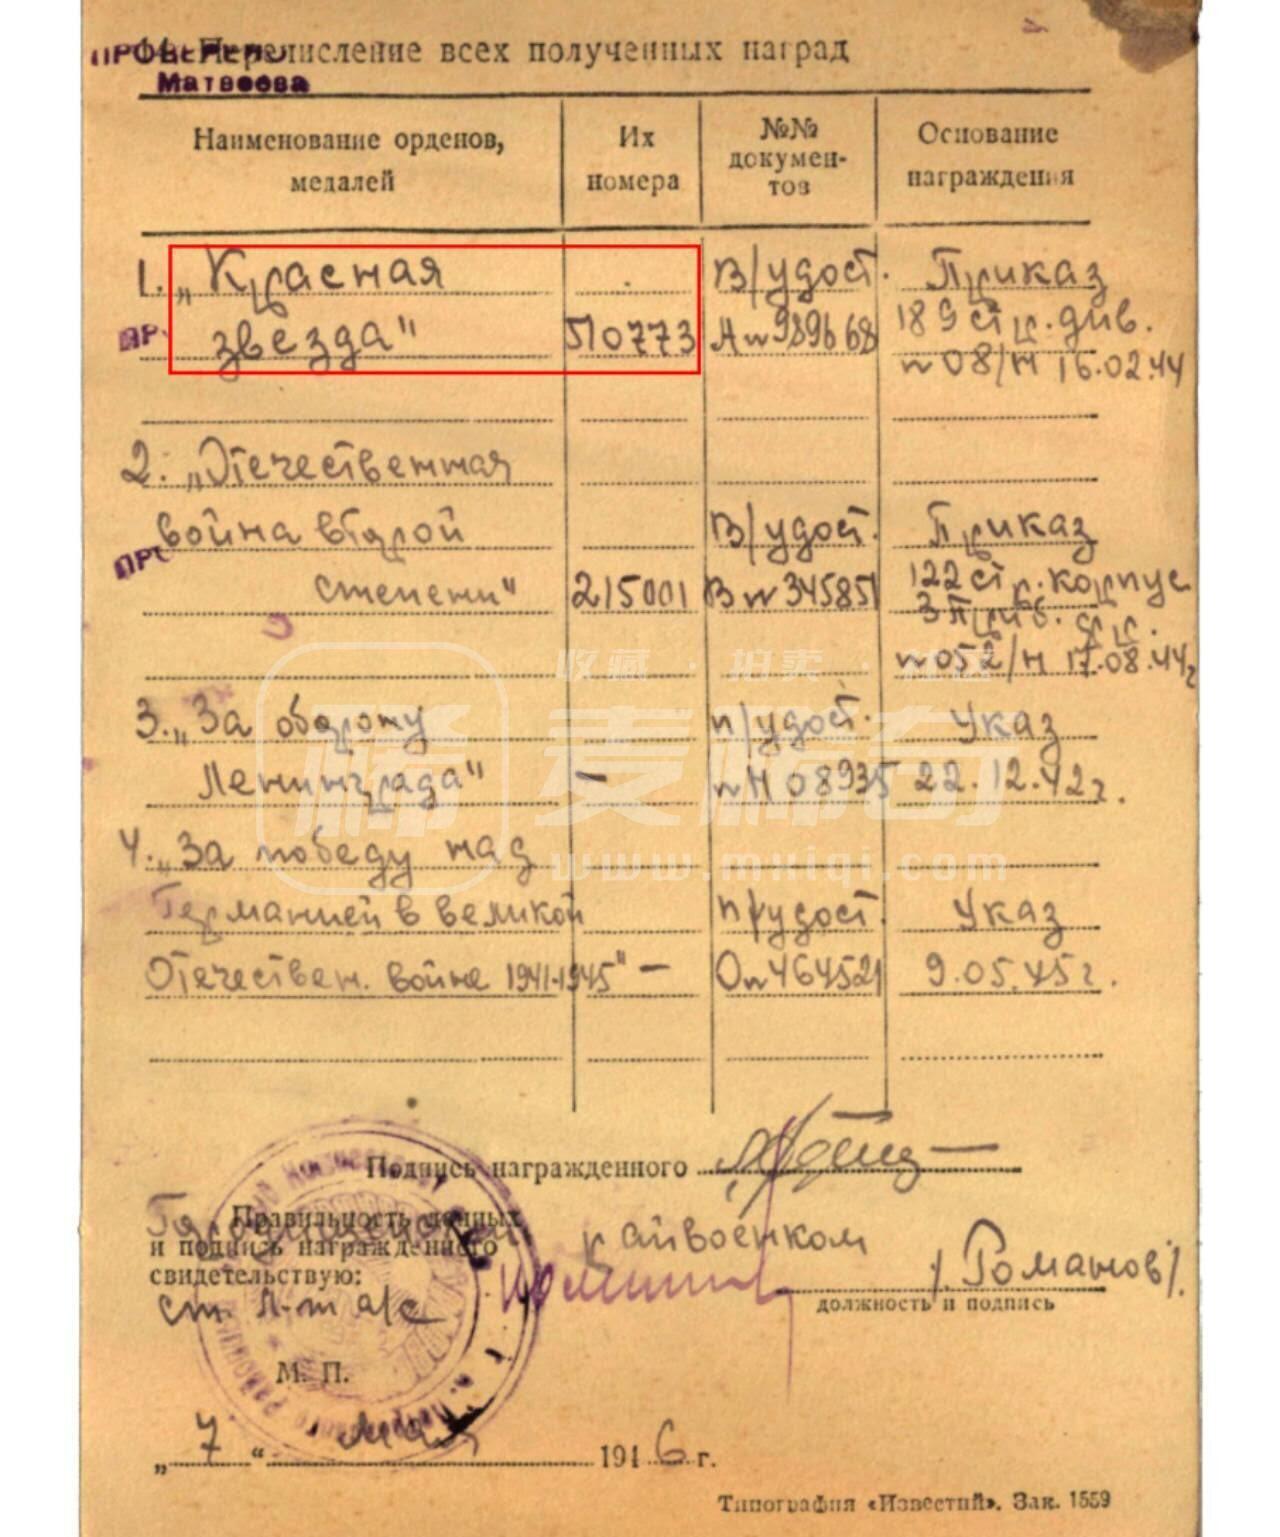 14. Перечисление всех полученных наград
Матвеева
Наименование орденов, медалей
Их номера
№№ документов
Основание награждения
1. „Красная В/удост. Приказ
звезда" 510773 А № 989668 189 стр. див.
№ 08/н 16.02.44
2. „Отечественная
война второй В/удост. Приказ
степени" 215001 В № 345851 122 стр. корпус
3 Приб. фр.
№ 052/н 17.08.44 г
收藏 · 拍卖 ·
稀 麦稀奇
3. „За оборону п/удост. Указ
Ленинграда" — № Н 08935 22.12.42 г.
4. „За победу над
www.mxiqi.com
Германией в великой п/удост. Указ
Отечествен. войне 1941-1945" — О № 464521 9.05.45 г.
Подпись награжденного
Правильность данных
и подпись награжденного
свидетельствую:
райвоенком
/Романов/.
ст. л-т а/с
должность и подпись
М. П.
„ 7 " мая 1946 г.
Типография «Известий». Зак. 1559